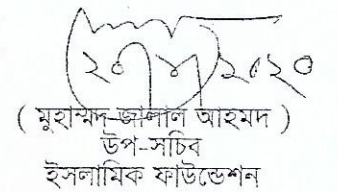 ( মুহাম্মদ জালাল আহমদ )
উপ-সচিব
ইসলামিক ফাউন্ডেশন